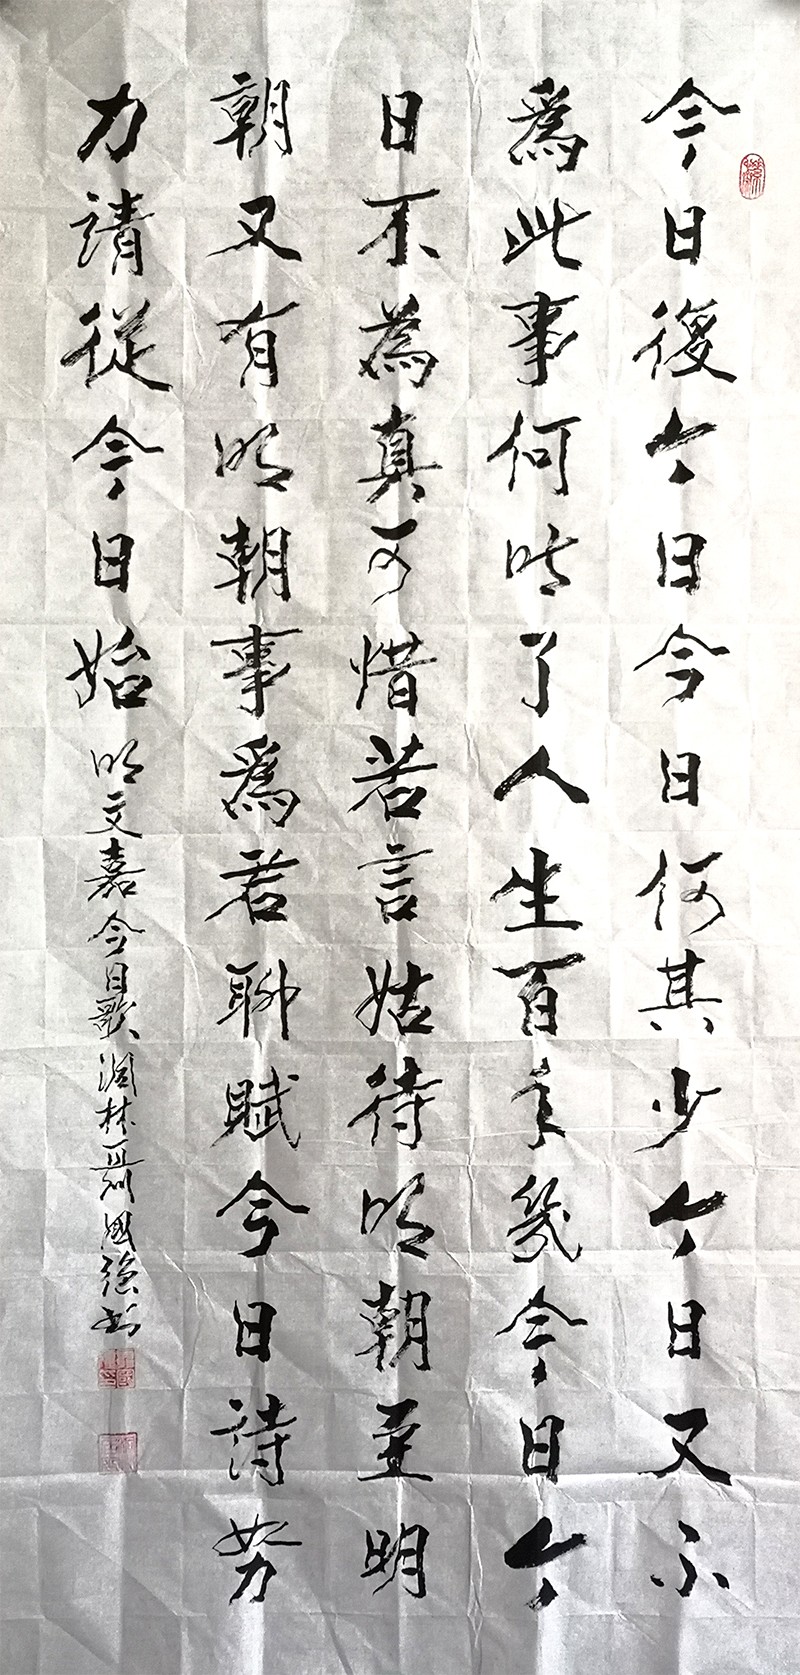 今日復今日今日何其少今日又不
爲此事何時了人生百年幾今日今
日不為真可惜若言姑待明朝至明
朝又有明朝事爲君聊賦今日詩努
力請從今日始
明文嘉今日歌林聶國強書